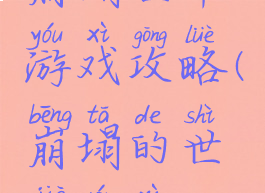 yóu xì gōng lüè
游戏攻略(
bēng tā de shì
崩塌的世